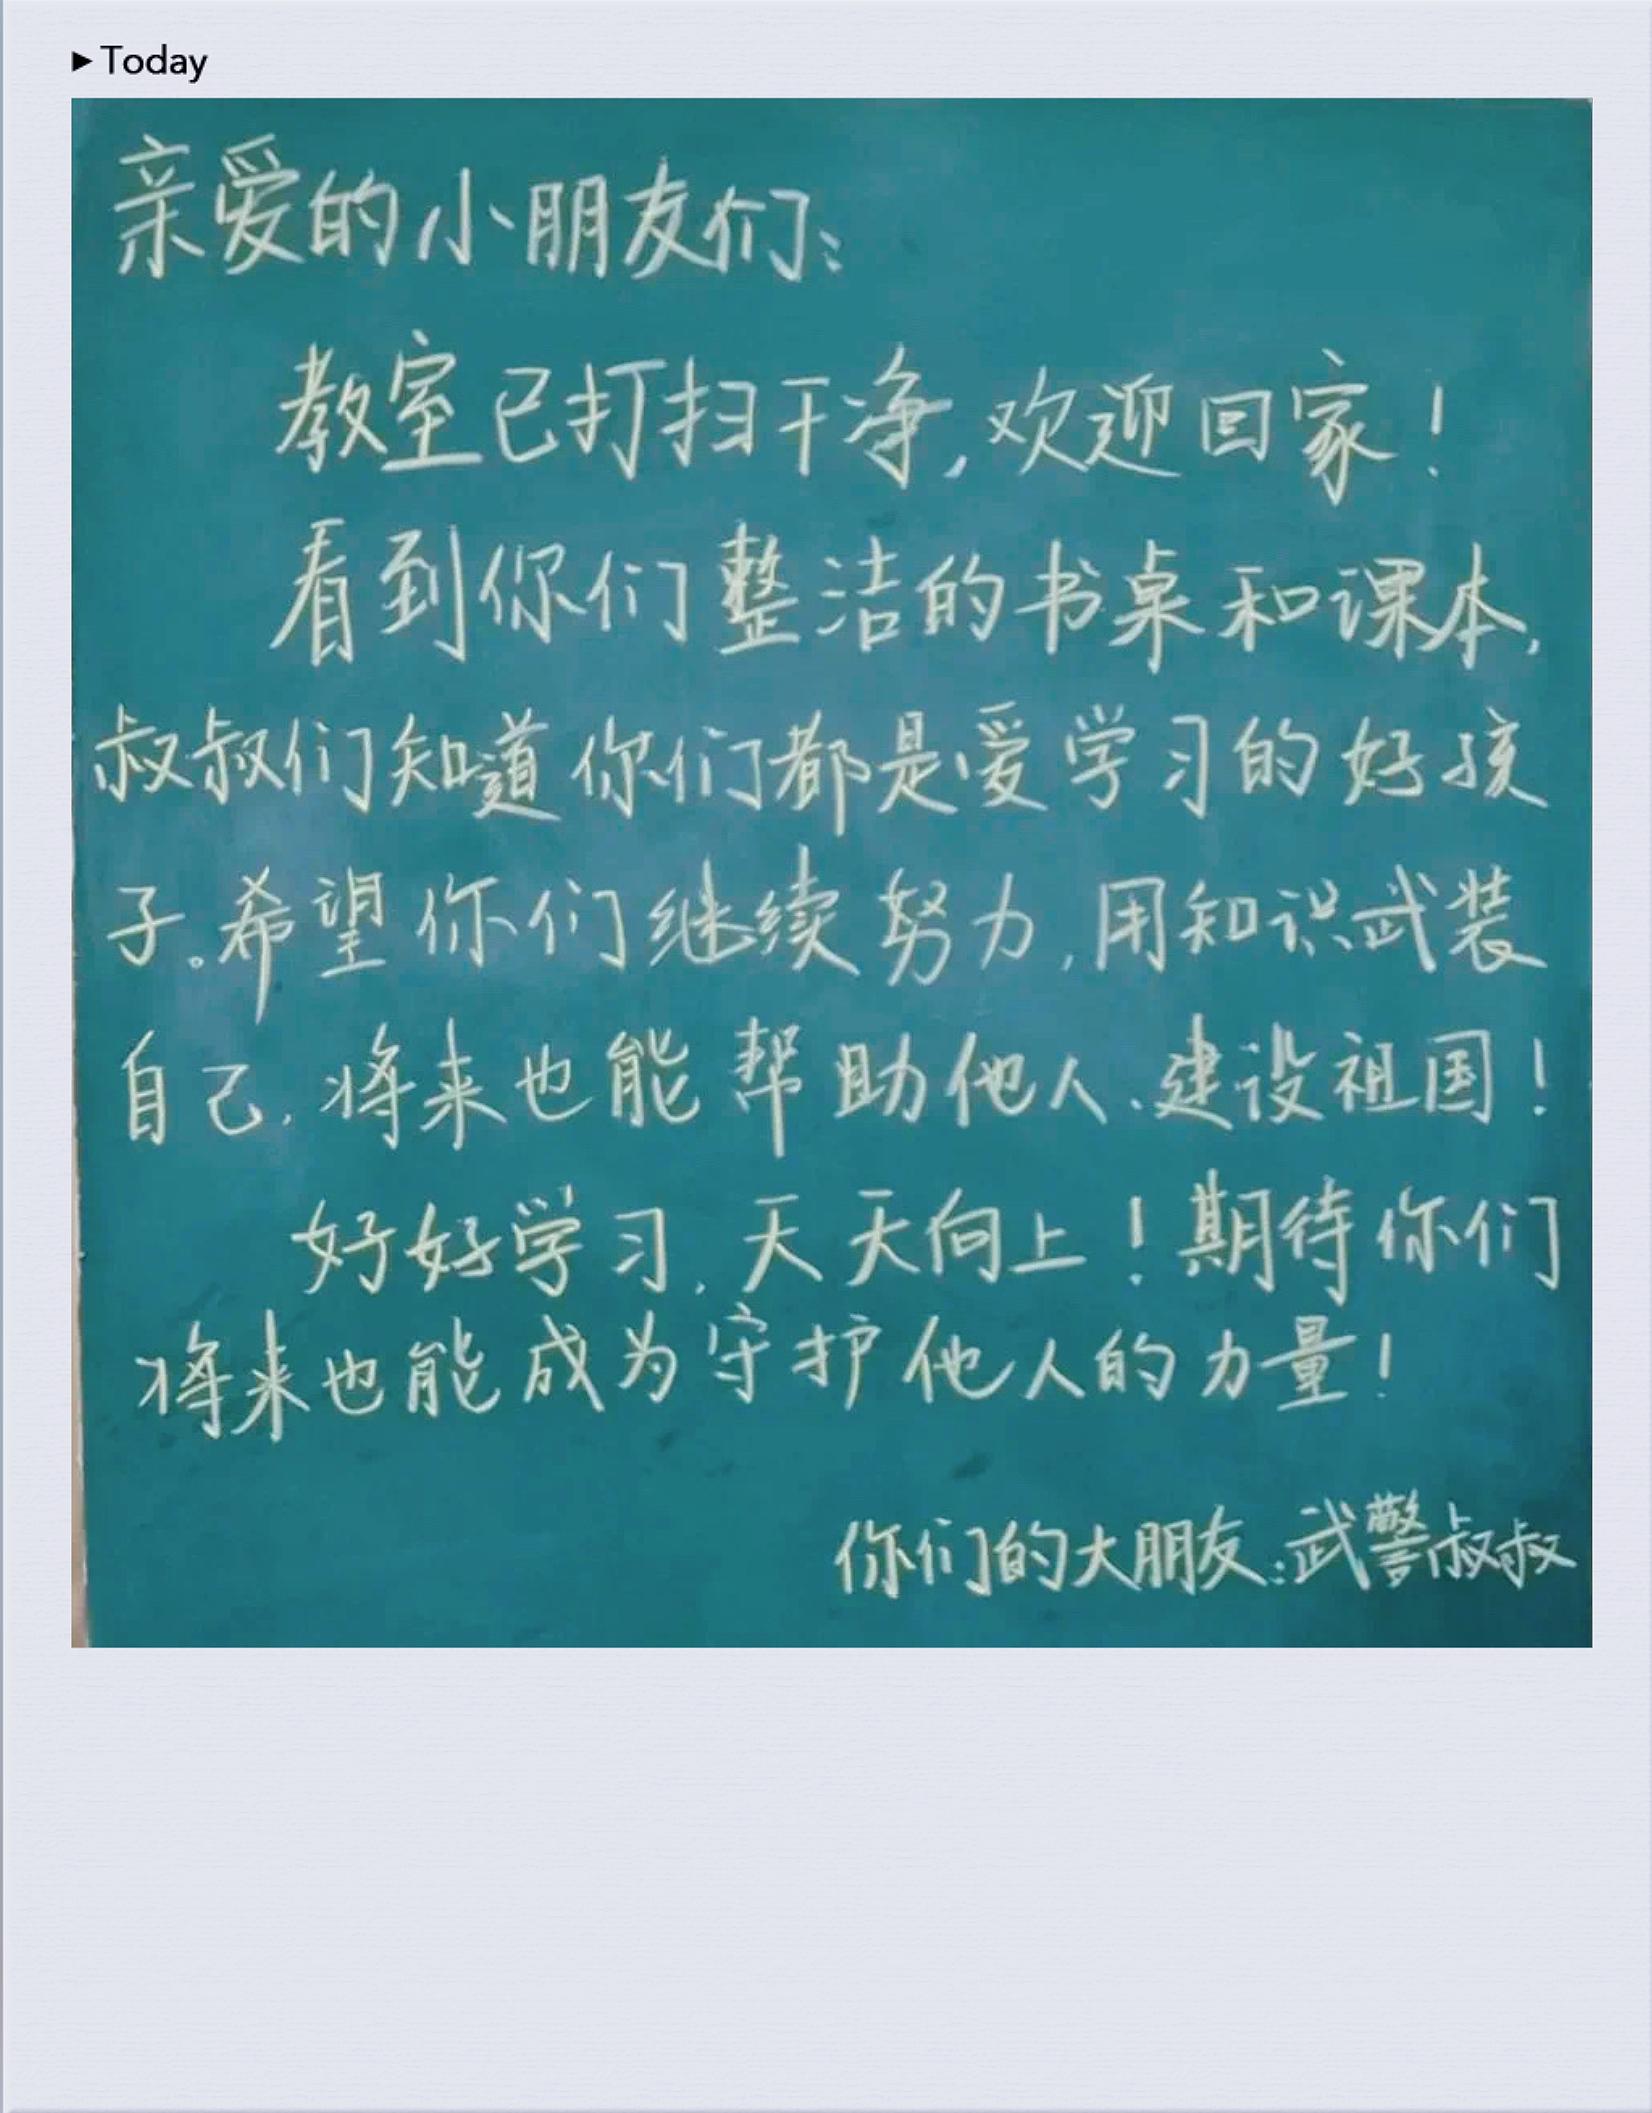 ▶Today
亲爱的小朋友们：
教室已打扫干净，欢迎回家！
看到你们整洁的书桌和课本，
叔叔们知道你们都是爱学习的好孩
子。希望你们继续努力，用知识武装
自己，将来也能帮助他人、建设祖国！
好好学习，天天向上！期待你们
将来也能成为守护他人的力量！
你们的大朋友：武警叔叔